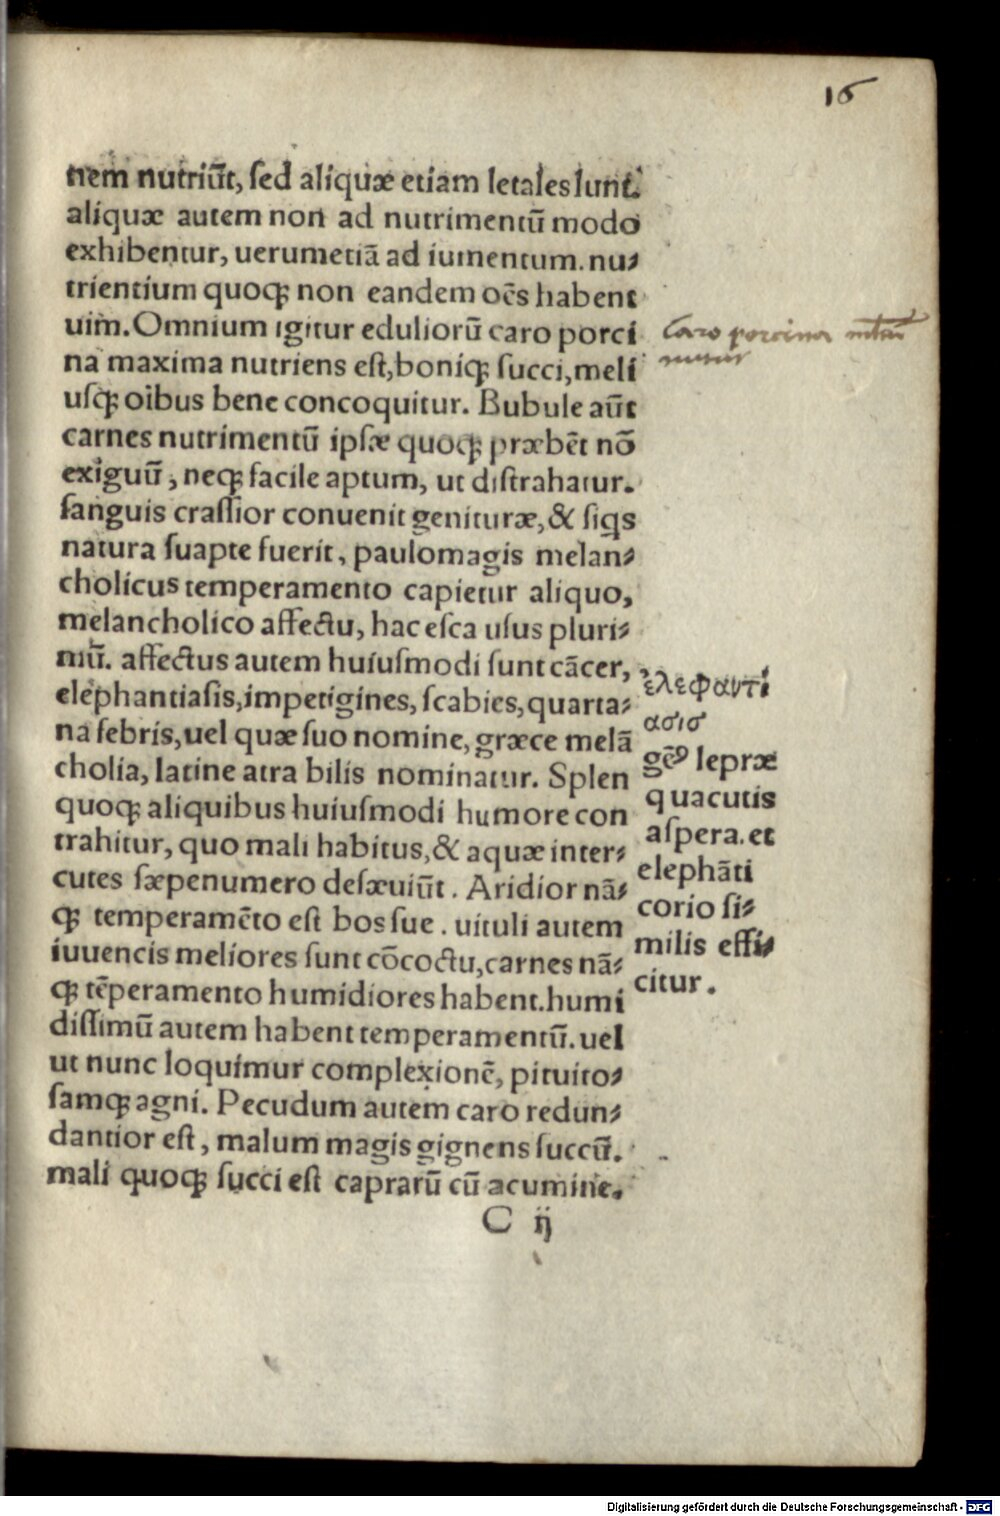 16
nem nutriūt, ſed aliquæ etiam letales ſunt.
aliquæ autem non ad nutrimentū modo
exhibentur, uerumetiā ad iumentum. nu⸗
trientium quoqꝫ non eandem oēs habent
uim. Omnium igitur eduliorū caro porci
na maxima nutriens eſt, boniqꝫ ſucci, meli
uſqꝫ oibus bene concoquitur. Bubule aūt
carnes nutrimentū ipſæ quoqꝫ præbēt nō
exiguū, neqꝫ facile aptum, ut diſtrahatur.
ſanguis craſſior conuenit genituræ, & ſiqs
natura ſuapte fuerit, paulomagis melan⸗
cholicus temperamento capietur aliquo,
melancholico affectu, hac eſca uſus pluri⸗
mū. affectus autem huiuſmodi ſunt cācer,
elephantiaſis, impetigines, ſcabies, quarta⸗
na febris, uel quæ ſuo nomine, græce melā
cholia, latine atra bilis nominatur. Splen
quoqꝫ aliquibus huiuſmodi humore con
trahitur, quo mali habitus, & aquæ inter⸗
cutes ſæpenumero deſæuiūt. Aridior nā⸗
qꝫ temperamēto eſt bos ſue. uituli autem
iuuencis meliores ſunt cōcoctu, carnes nā⸗
qꝫ tēperamento humidiores habent. humi
diſſimū autem habent temperamentū. uel
ut nunc loquimur complexionē, pituito⸗
ſamqꝫ agni. Pecudum autem caro redun⸗
dantior eſt, malum magis gignens ſuccū.
mali quoqꝫ ſucci eſt caprarū cū acumine.
C ij
Caro porcina
nutrit
ἐλεφαντί
ασισ
gēꝰ lepræ
qua cutis
aſpera. et
elephāti
corio ſi⸗
milis effi⸗
citur.
Digitalisierung gefördert durch die Deutsche Forschungsgemeinschaft - DFG